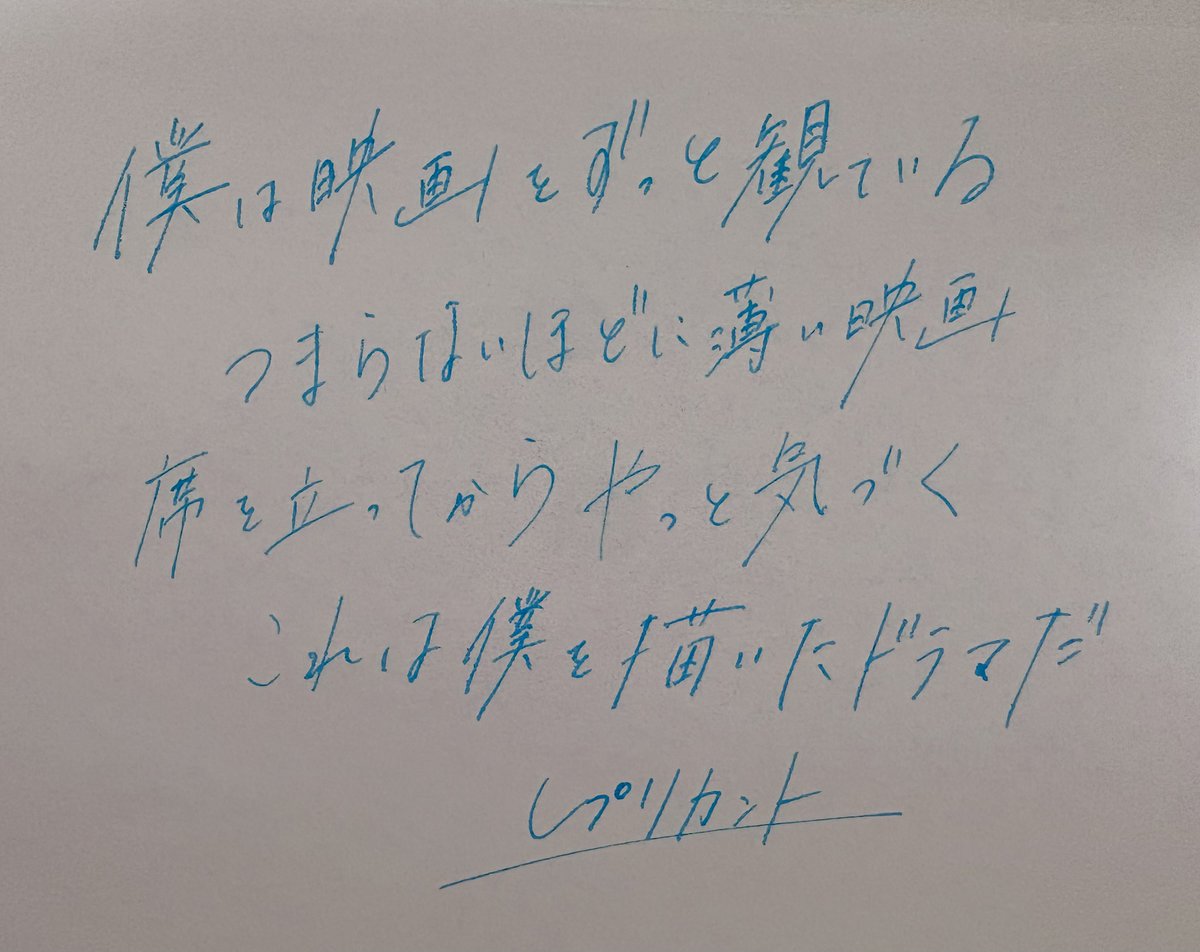 僕は映画をずっと観ている
つまらないほどに薄い映画
席を立ってからやっと気づく
これは僕を描いたドラマだ
レプリカント